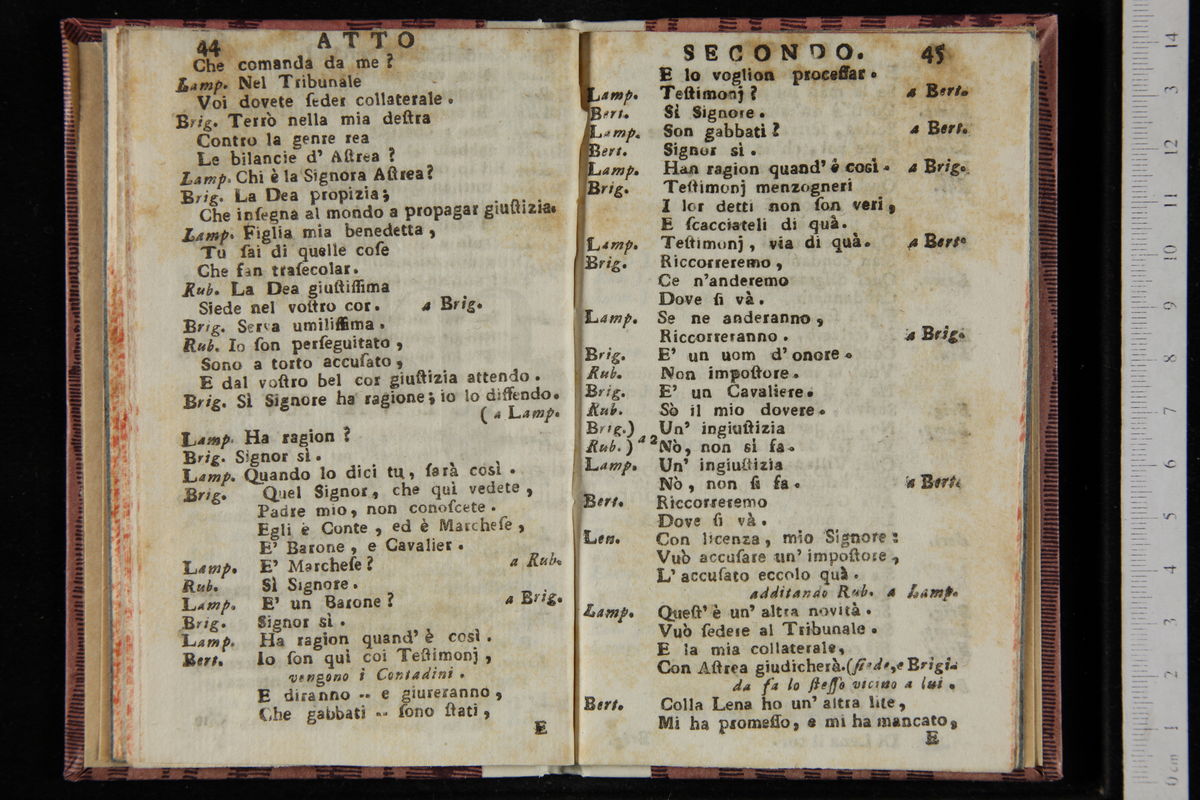 44 ATTO
Che comanda da me ?
Lamp. Nel Tribunale
Voi dovete ſeder collaterale .
Brig. Terrò nella mia deſtra
Contro la genre rea
Le bilancie d' Aſtrea ?
Lamp. Chi è la Signora Aſtrea ?
Brig. La Dea propizia ;
Che inſegna al mondo a propagar giuſtizia.
Lamp. Figlia mia benedetta ,
Tu ſai di quelle coſe
Che fan traſecolar.
Rub. La Dea giuſtiſſima
Siede nel voſtro cor . a Brig.
Brig. Serva umiliſſima .
Rub. Io ſon perſeguitato ,
Sono a torto accuſato ,
E dal voſtro bel cor giuſtizia attendo .
Brig. Sì Signore ha ragione ; io lo diffendo.
( a Lamp.
Lamp. Ha ragion ?
Brig. Signor sì .
Lamp. Quando lo dici tu , ſarà così .
Brig. Quel Signor , che quì vedete ,
Padre mio , non conoſcete .
Egli è Conte , ed è Marcheſe ,
E' Barone , e Cavalier .
Lamp. E' Marcheſe ? a Rub.
Rub. Sì Signore .
Lamp. E' un Barone ? a Brig.
Brig. Signor sì .
Lamp. Ha ragion quand' è così .
Bert. Io ſon quì coi Teſtimonj ,
vengono i Contadini .
E diranno -- e giureranno ,
Che gabbati -- ſono ſtati ,
E
SECONDO. 45
E lo voglion proceſſar .
Lamp. Teſtimonj ? a Bert.
Bert. Sì Signore .
Lamp. Son gabbati ? a Bert.
Bert. Signor sì .
Lamp. Han ragion quand' è così . a Brig.
Brig. Teſtimonj menzogneri
I lor detti non ſon veri ,
E ſcacciateli di quà .
Lamp. Teſtimonj , via di quà . a Bert.
Brig. Riccorreremo ,
Ce n'anderemo
Dove ſi và .
Lamp. Se ne anderanno ,
Riccorreranno . a Brig.
Brig. E' un uom d' onore .
Rub. Non impoſtore .
Brig. E' un Cavaliere .
Rub. Sò il mio dovere .
Brig. ) Un' ingiuſtizia
Rub. ) a 2 Nò, non si fa .
Lamp. Un' ingiuſtizia
Nò , non ſi fa . a Bert.
Bert. Riccorreremo
Dove ſi và .
Len. Con licenza , mio Signore :
Vuò accuſare un' impoſtore ,
L' accuſato eccolo quà .
additando Rub. a Lamp.
Lamp. Queſt' è un' altra novità .
Vuò ſedere al Tribunale .
E la mia collaterale,
Con Aſtrea giudicherà. (ſiede, e Brigi-
da fa lo ſteſſo vicino a lui .
Bert. Colla Lena ho un' altra lite ,
Mi ha promeſſo , e mi ha mancato ,
E
14
13
12
11
10
9
8
7
6
5
4
3
2
1
0 cm